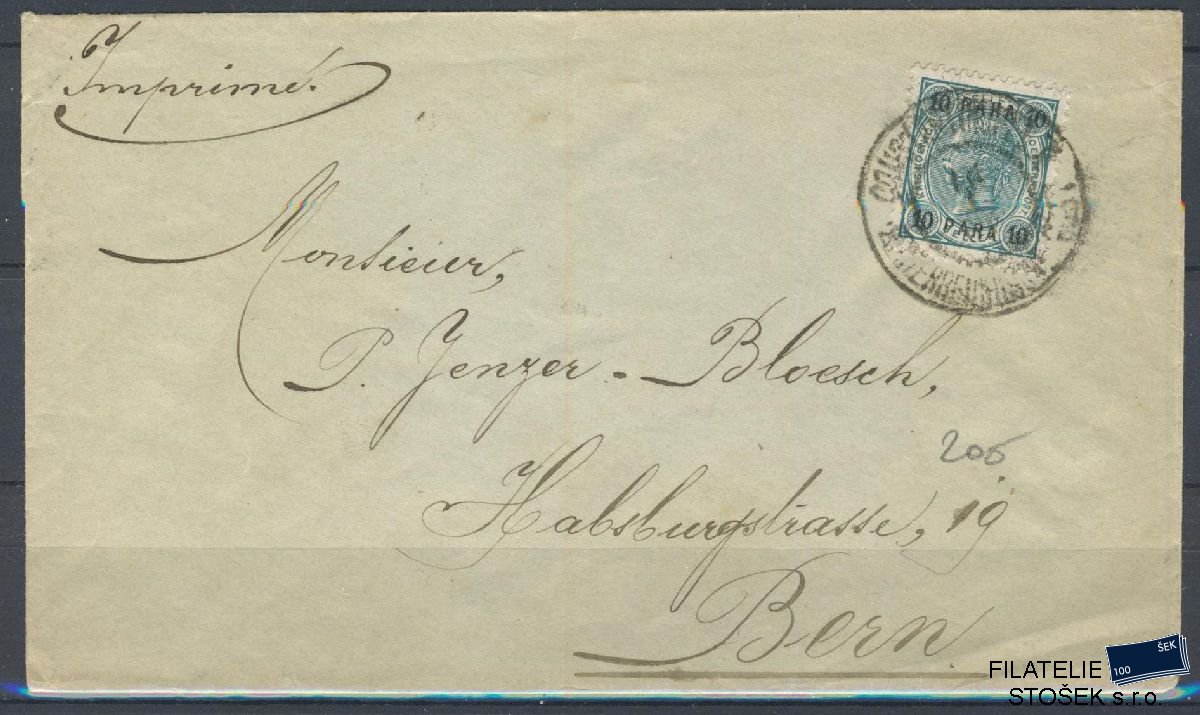 Imprimé.
10 PARA 10
10 PARA 10
Monsieur,
P. Jenzer-Bloesch,
206
Habsburgstrasse, 19
Bern.
FILATELIE
STOŠEK s.r.o.
100 ŠEK